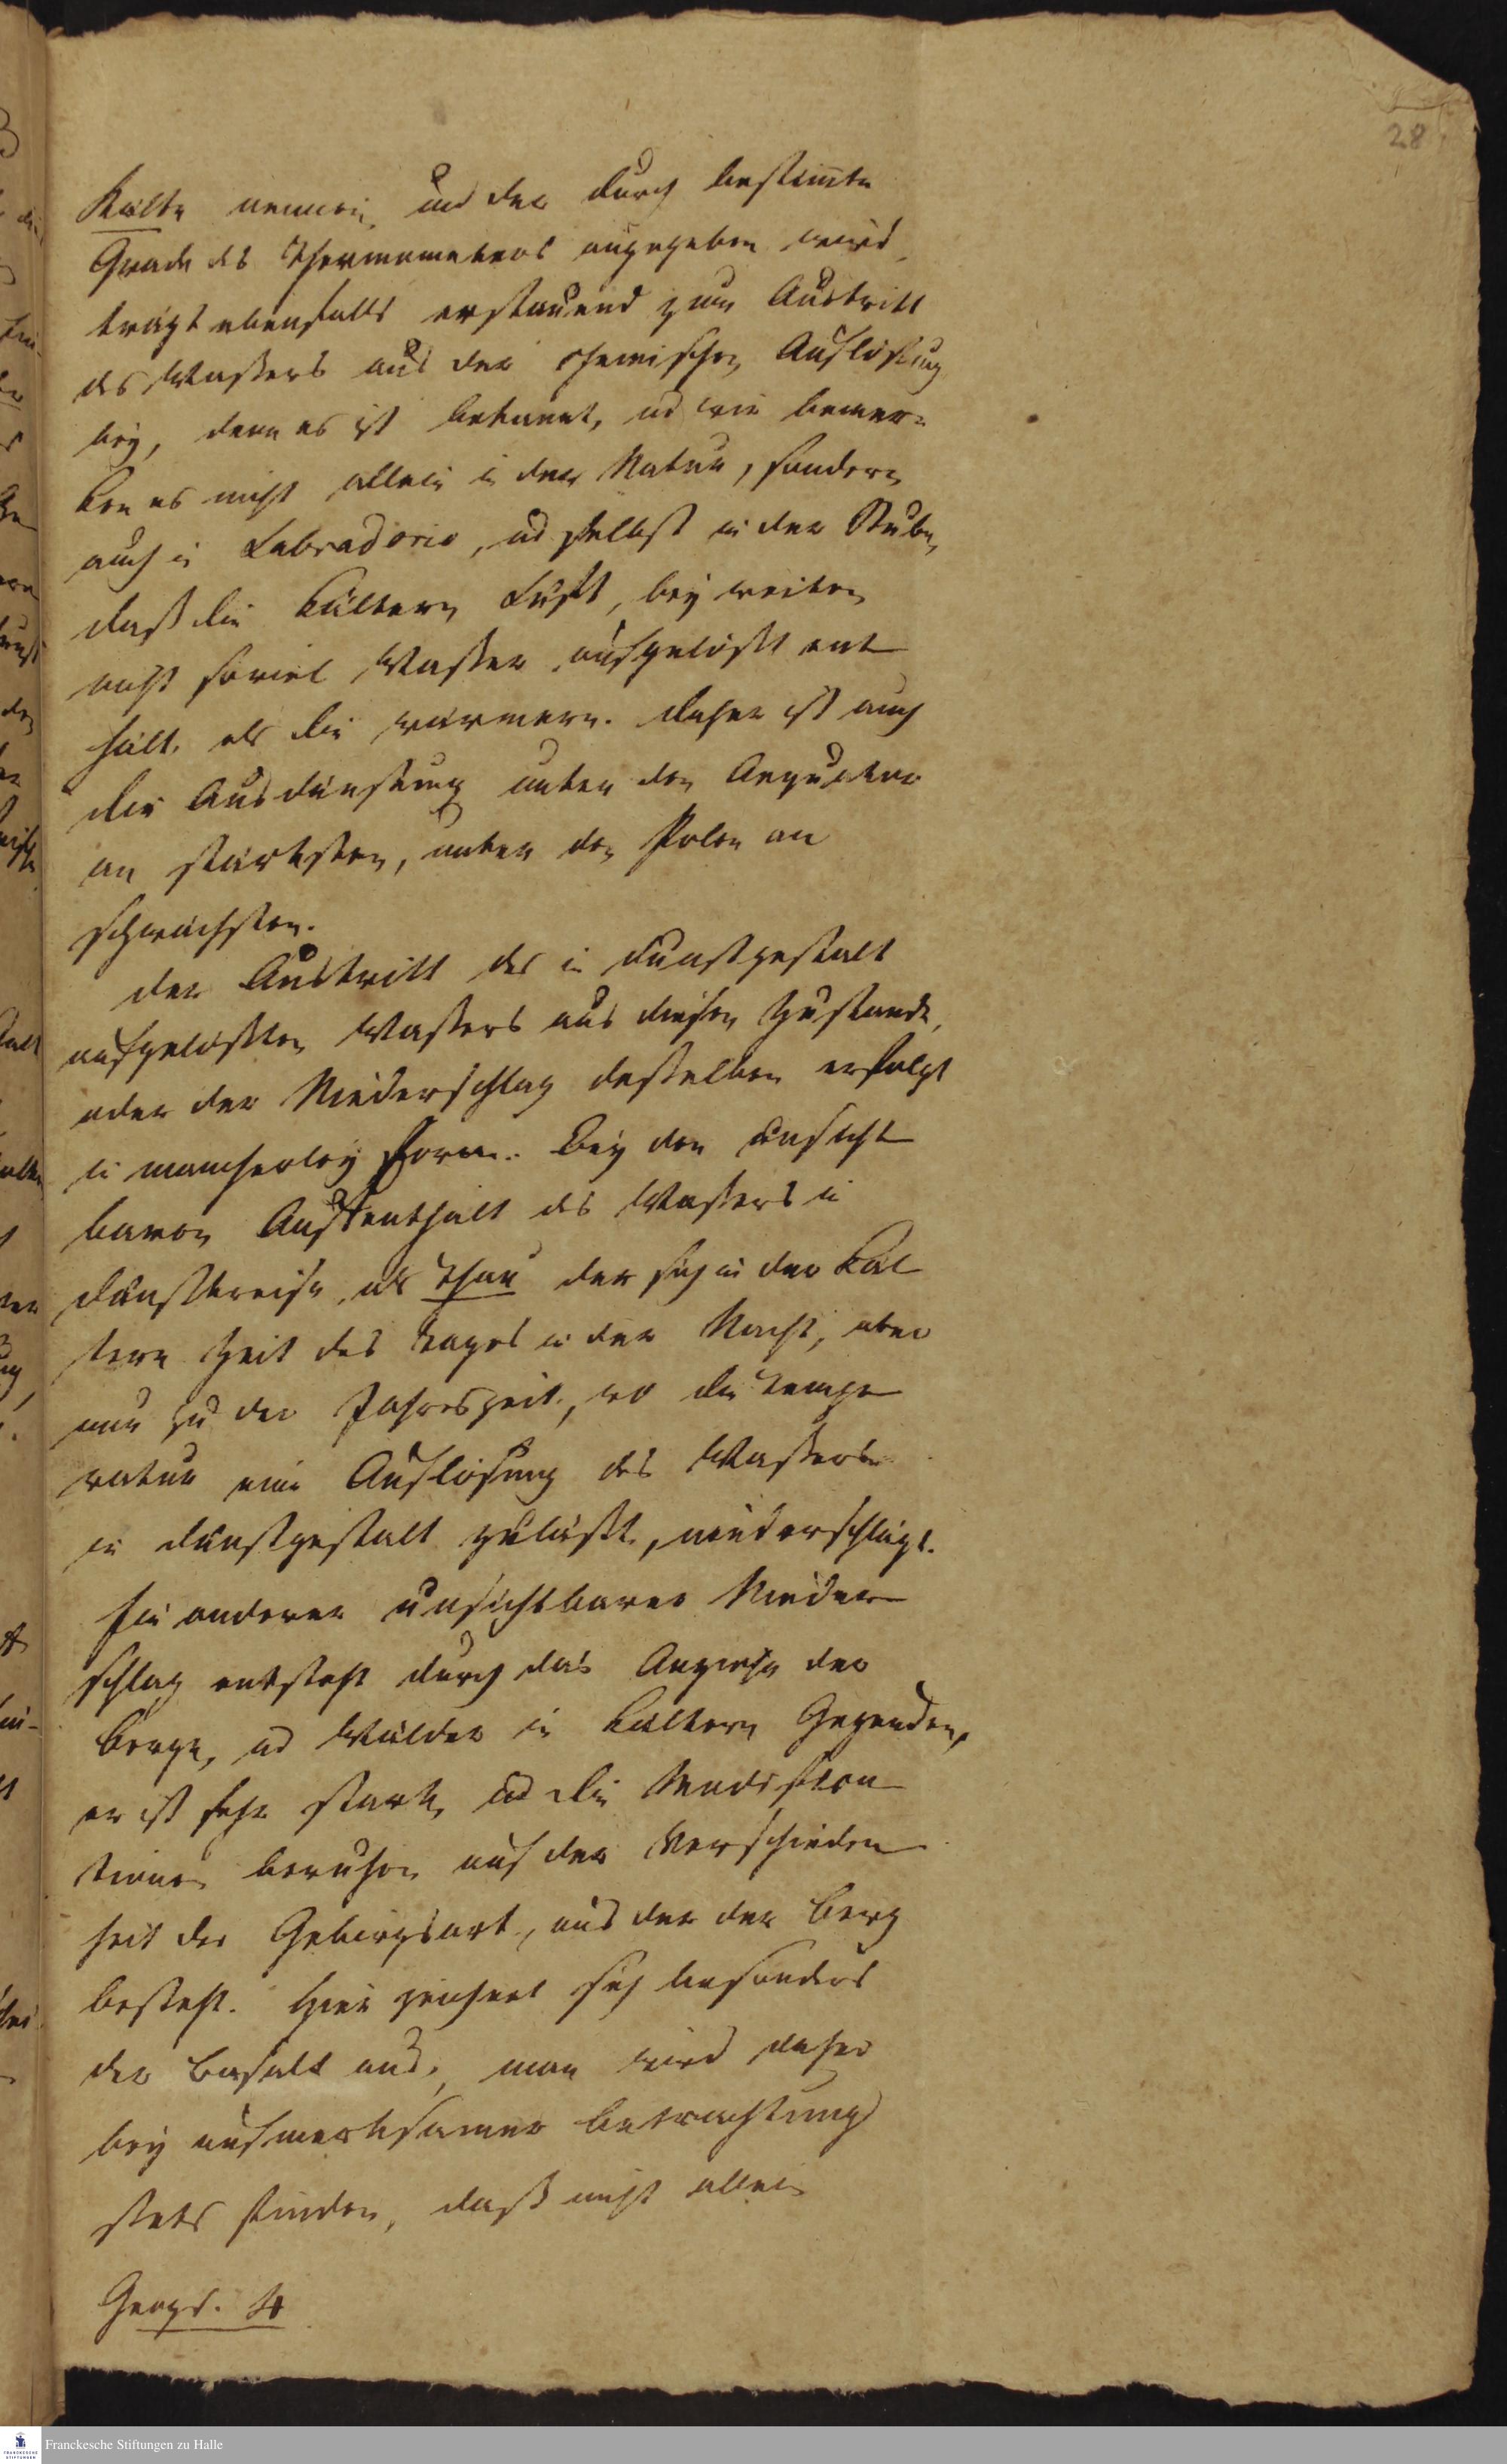 28
Kälte nennen, und der durch bestimte
Grade des Thermometers angegeben wird,
trägt ebenfalls erstauend zum Austritt
des Waßers aus der chemischen Auflösung
bey, denn es ist bekannt, ud wir bemer-
ken es nicht allein in der Natur, sondern
auch in Labradorio, ud selbst in der Stube,
daß die kältern Luft, bey weiten
nicht soviel Waßer aufgelößt ent
hält, als die wärmern. Daher ist auch
die Ausdünstung unter den Aequator
am stärksten, unter den Polen am
schwächsten.
Der Austritt des in Dunstgestalt
aufgelößten Waßers aus diesen Zustande,
oder der Niederschlag desselben erfolgt
in mancherley Form. Bey den unsicht
baren Aufenthalt des Waßers in
Dunstkreise, als Thau der sich in der käl
tern Zeit des Tages in der Nacht, aber
nur zu der Jahreszeit, wo die Tempe
ratur eine Auflösung des Waßers
in Dunstgestalt zuläßt, niederschlägt.
Ein anderer unsichtbarer Nieder
schlag entsteht durch das der
Berge, ud Wälder in kältern Gegenden,
er ist sehr stark, ud die
beruhen auf der Verschieden
heit der Gebirgsart, aus der der Berg
besteht. Hier zeichnet sich besonders
der Basalt aus, man wird daher
bey aufmerksamer Betrachtung
stets finden, daß nicht allein
Geogr. 4
Franckesche Stiftungen zu Halle